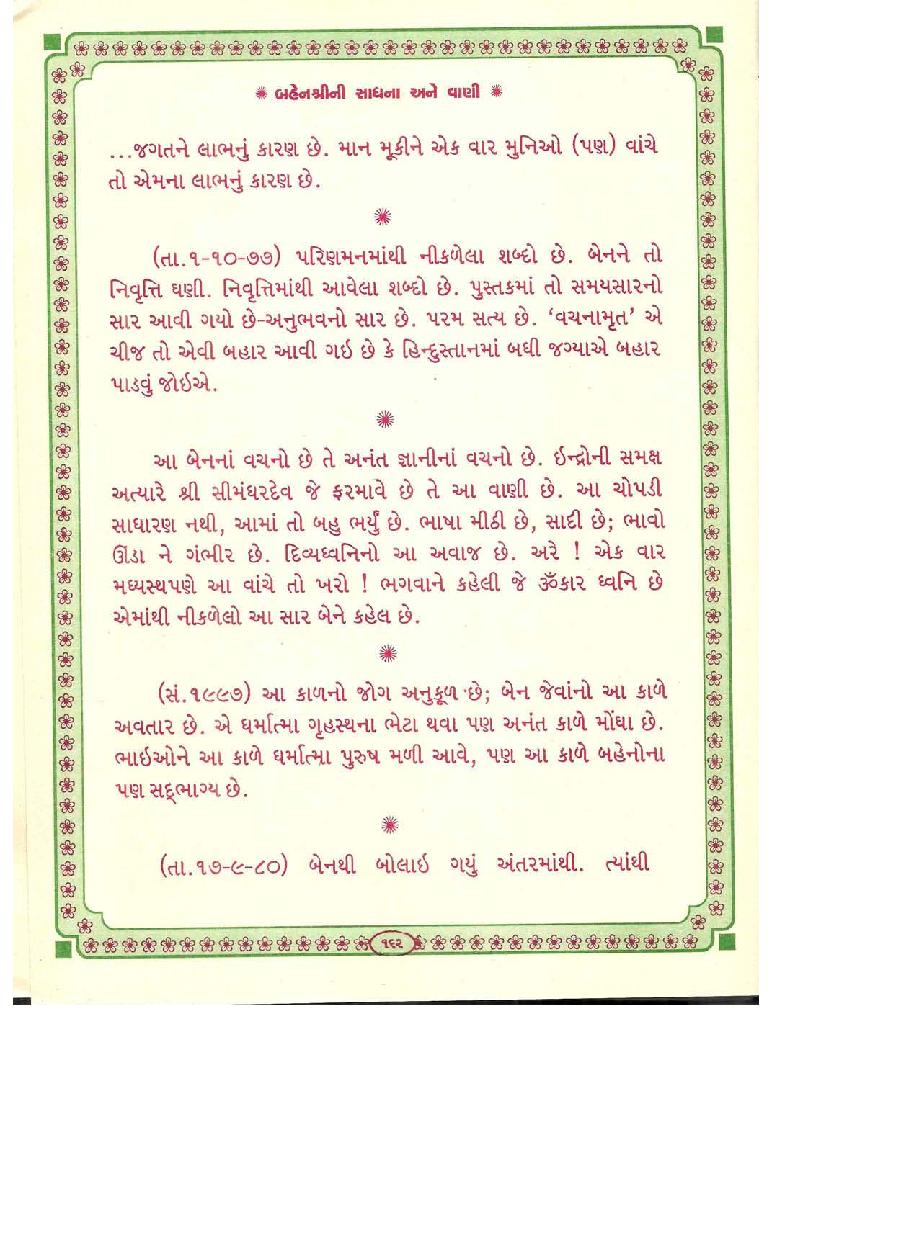 બહેનશ્રીની સાધના અને વાણી
...જગતને લાભનું કારણ છે. માન મૂકીને એક વાર મુનિઓ (પણ) વાંચે
તો એમના લાભનું કારણ છે.
(તા.૧-૧૦-૭૭) પરિણમનમાંથી નીકળેલા શબ્દો છે. બેનને તો
નિવૃત્તિ ઘણી. નિવૃત્તિમાંથી આવેલા શબ્દો છે. પુસ્તકમાં તો સમયસારનો
સાર આવી ગયો છે-અનુભવનો સાર છે. પરમ સત્ય છે. ‘વચનામૃત’ એ
ચીજ તો એવી બહાર આવી ગઇ છે કે હિન્દુસ્તાનમાં બધી જગ્યાએ બહાર
પાડવું જોઇએ.
આ બેનનાં વચનો છે તે અનંત જ્ઞાનીનાં વચનો છે. ઇન્દ્રોની સમક્ષ
અત્યારે શ્રી સીમંધરદેવ જે ફરમાવે છે તે આ વાણી છે. આ ચોપડી
સાધારણ નથી, આમાં તો બહુ ભર્યું છે. ભાષા મીઠી છે, સાદી છે; ભાવો
ઊંડા ને ગંભીર છે. દિવ્યધ્વનિનો આ અવાજ છે. અરે ! એક વાર
મધ્યસ્થપણે આ વાંચે તો ખરો ! ભગવાને કહેલી જે ૐકાર ધ્વનિ છે
એમાંથી નીકળેલો આ સાર બેને કહેલ છે.
(સં.૧૯૯૭) આ કાળનો જોગ અનુકૂળ છે; બેન જેવાંનો આ કાળે
અવતાર છે. એ ધર્માત્મા ગૃહસ્થના ભેટા થવા પણ અનંત કાળે મોંઘા છે.
ભાઇઓને આ કાળે ધર્માત્મા પુરુષ મળી આવે, પણ આ કાળે બહેનોના
પણ સદ્ભાગ્ય છે.
(તા.૧૭-૯-૮૦) બેનથી બોલાઇ ગયું અંતરમાંથી. ત્યાંથી
૧૬૨